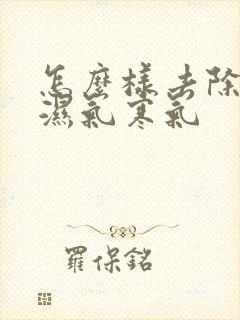 怎麼樣去除
濕氣寒氣
羅保銘